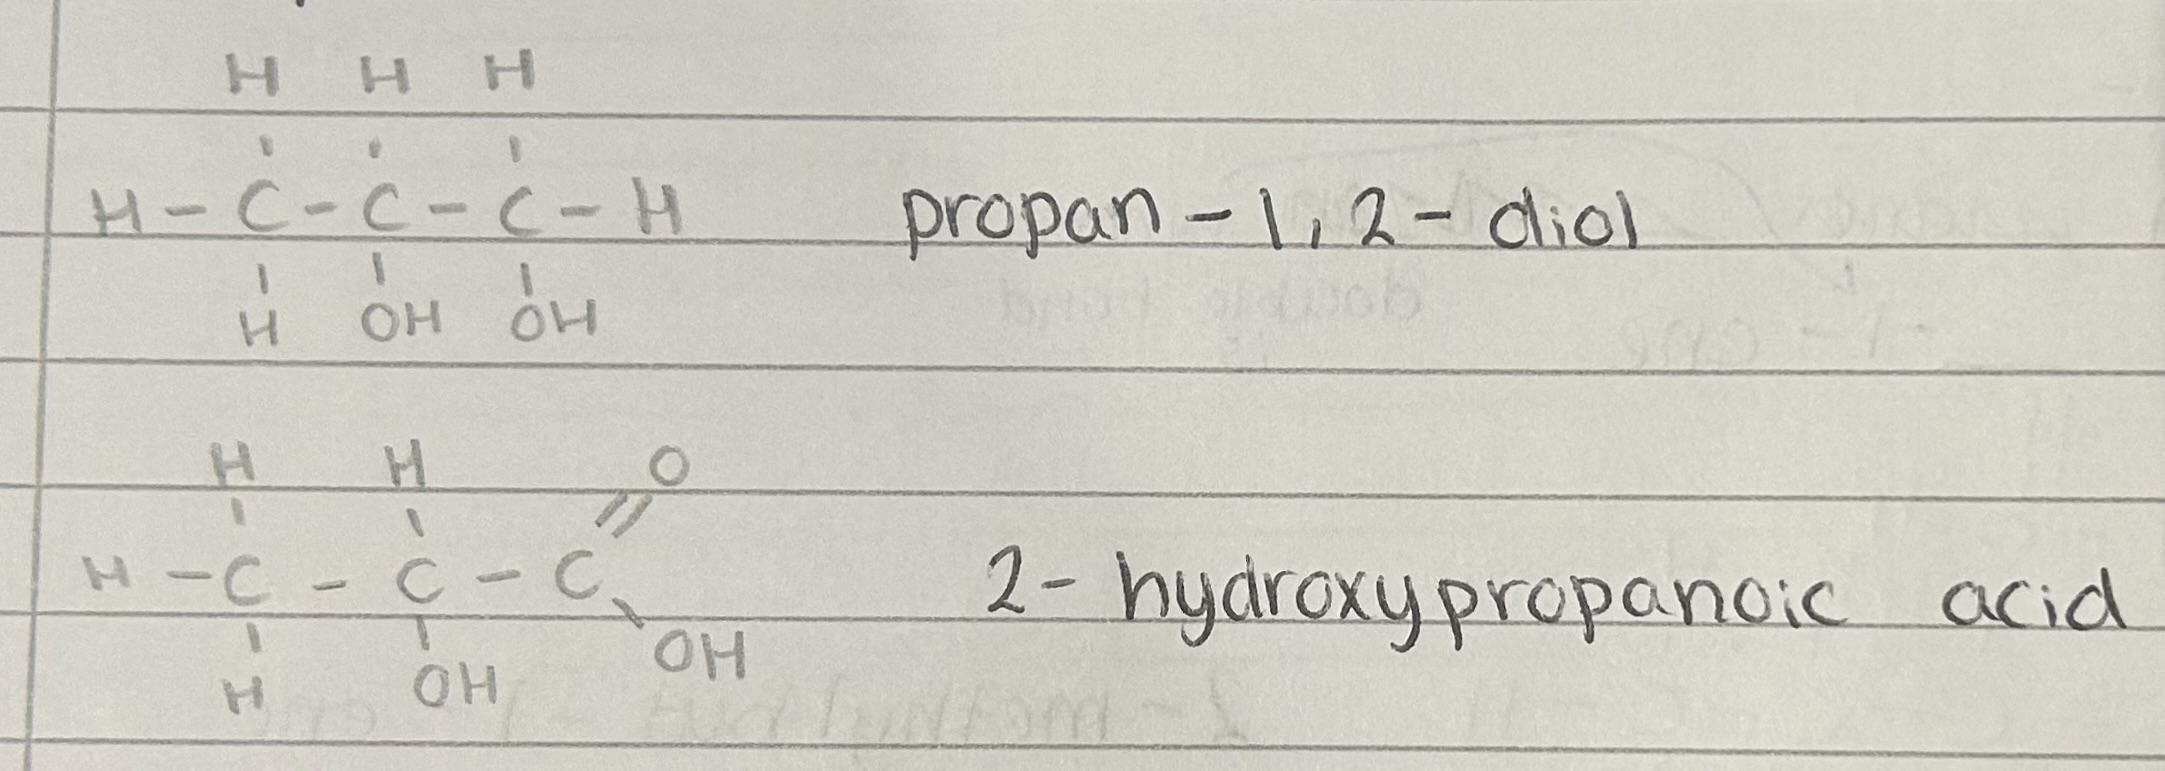 H H H
H - C - C - C - H propan - 1, 2 - diol
H OH OH
H H O
H - C - C - C 2 - hydroxypropanoic acid
OH
H OH